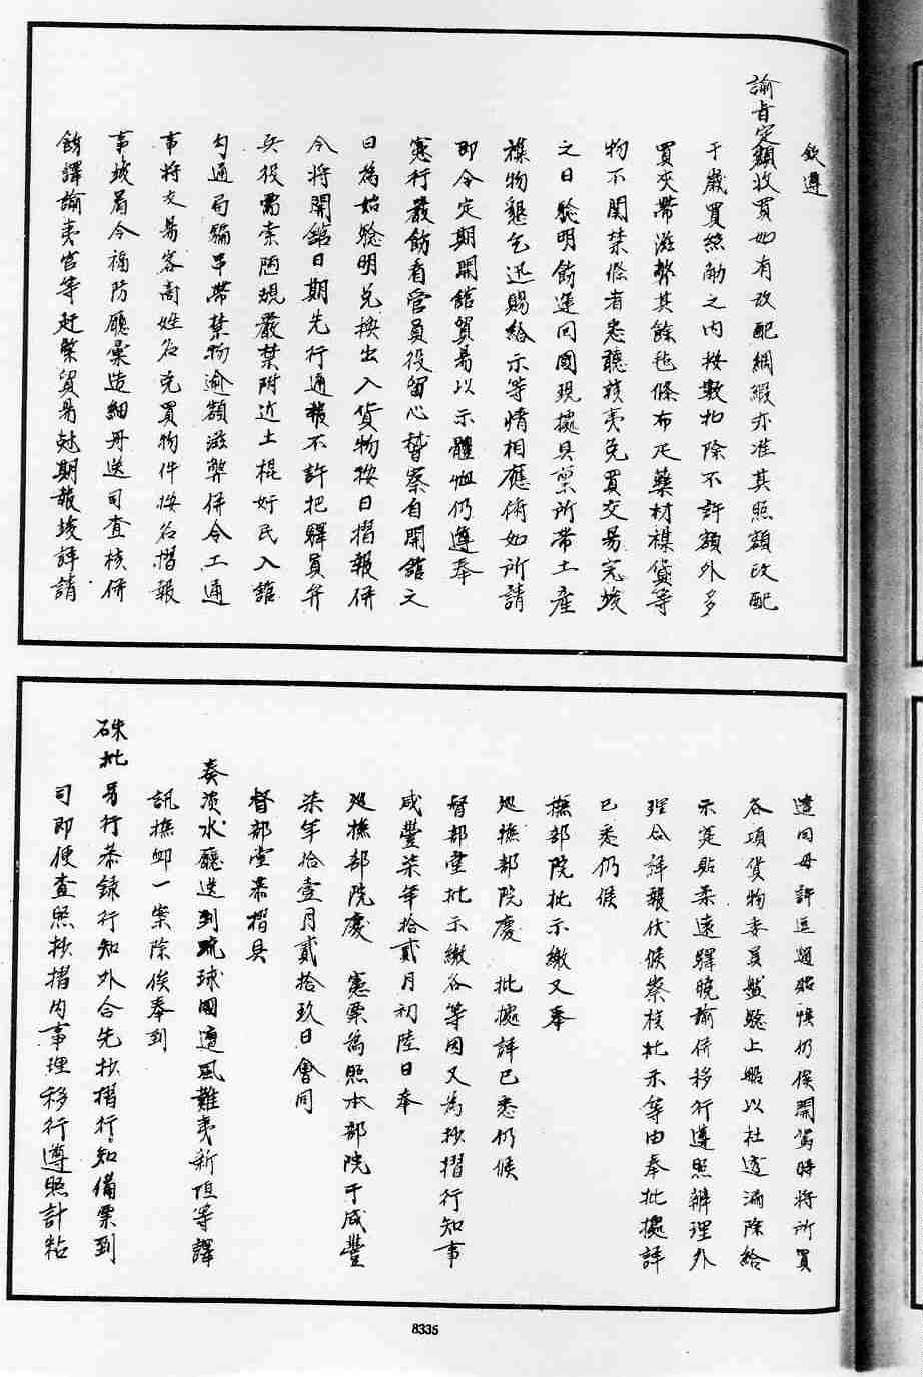 欽遵
諭旨定額收買如有改配綢緞亦准其照額改配
于歲買絲觔之內按數扣除不許額外多
買夾帶滋弊其餘毡條布疋藥材襍貨等
物不関禁條者悉聽該夷免買交易完竣
之日驗明飭運回國現據具禀所帶土產
襍物懇乞迅賜給示等情相應俯如所請
即令定期開館貿易以示體恤仍遵奉
憲行嚴飭看管員役留心督察自開舘之
日為始驗明兑換出入貨物按日摺報併
令將開舘日期先行通報不許把驛員弁
兵役需索陋規嚴禁附近土棍奸民入舘
勾通局騙串帶禁物逾額滋弊併令土通
事將交易客商姓名兑買物件按名摺報
事竣着令福防廳彙造細册送司查核併
飭譯諭夷官等赶緊貿易尅期報竣詳請
遣回毋許逗遛貽悞仍俟開駕時將所買
各項貨物委員盤驗上船以杜透漏除給
示寔貼柔遠驛曉諭併移行遵照辦理外
理合詳報伏候察核批示等由奉批據詳
已悉仍候
撫部院批示繳又奉
廵撫部院慶 批據詳已悉仍候
督部堂批示繳各等因又為抄摺行知事
咸豐柒年拾貳月初陸日奉
廵撫部院慶 憲票為照本部院于咸豐
柒年拾壹月貳拾玖日會同
督部堂恭摺具
奏淡水廳送到琉球國遭風難夷新垣等譯
訊撫卹一案除俟奉到
硃批另行恭録行知外合先抄摺行知備票到
司即便查照抄摺內事理移行遵照計粘
8335